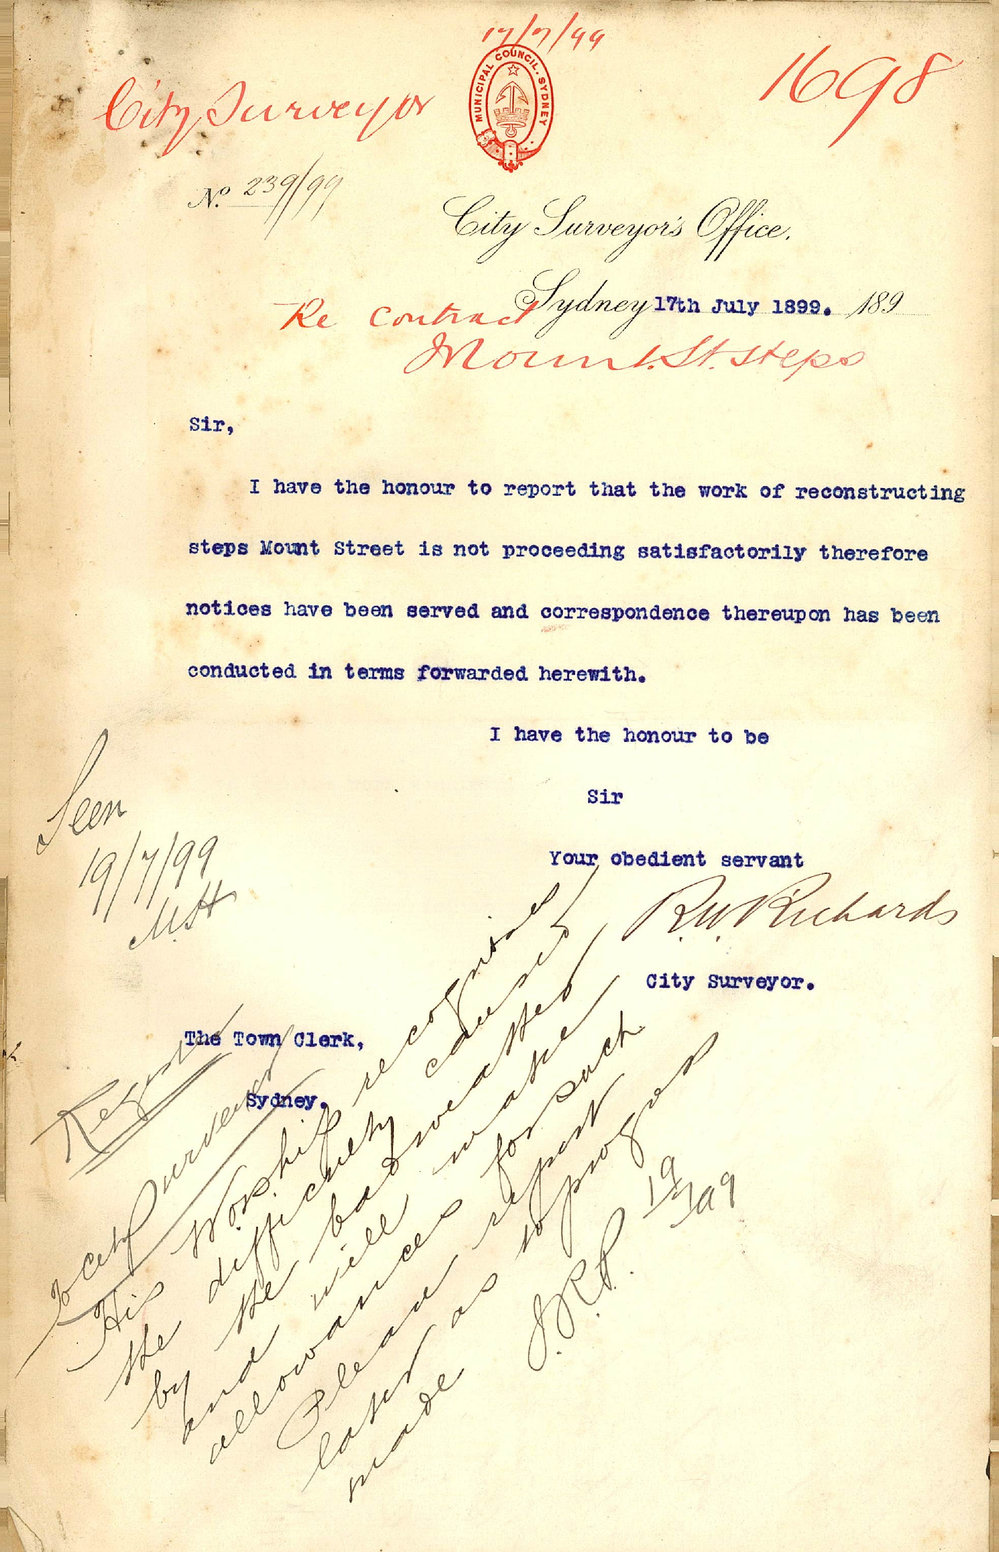 17/7/99
City Surveyor
MUNICIPAL COUNCIL. SYDNEY
1698
No. 239/99
City Surveyor's Office.
Sydney 17th July 1899. 189
Re contract
Mount St. steps
Sir,
I have the honour to report that the work of reconstructing
steps Mount Street is not proceeding satisfactorily therefore
notices have been served and correspondence thereupon has been
conducted in terms forwarded herewith.
I have the honour to be
Sir
Your obedient servant
R.W. Richards
City Surveyor.
Seen
19/7/99
M.H
The Town Clerk,
Sydney.
Register
City Surveyor
His Worship recognises
the difficulty caused
by the bad weather
and will make
allowances for such
Please report
later as to progress
made
19/7/99